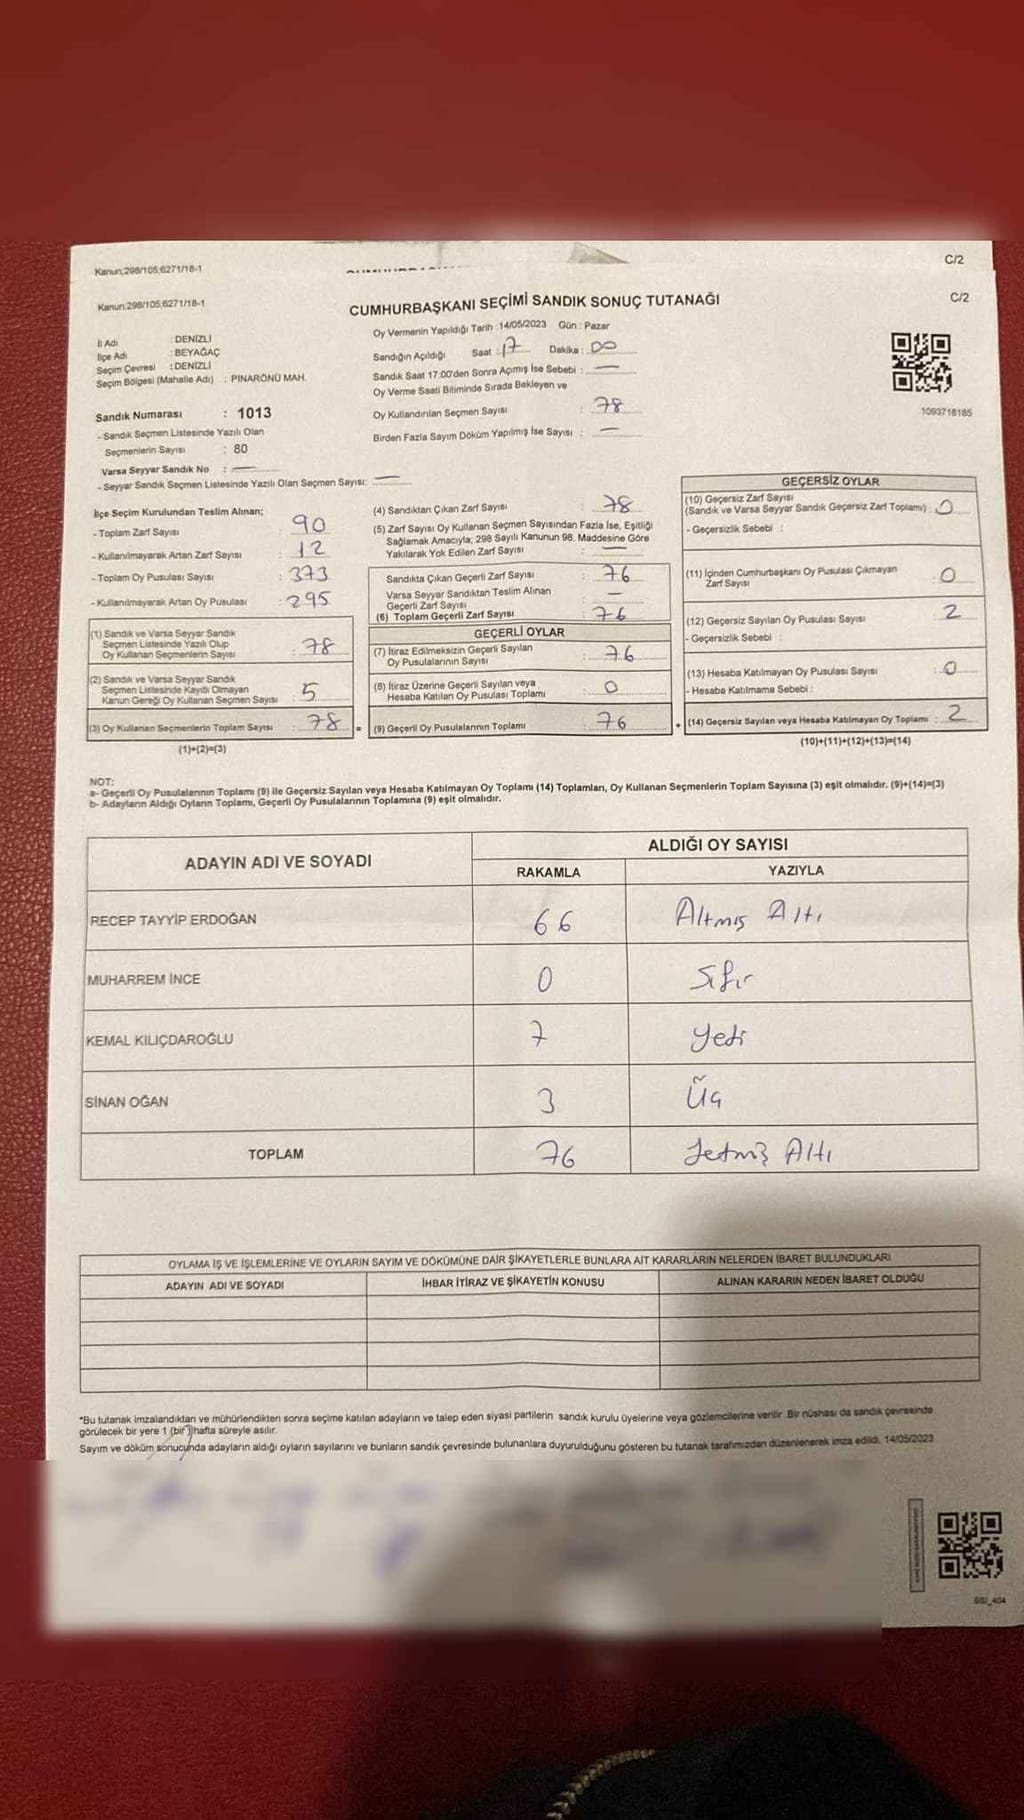 Kanun;298/105;6271/18-1
C/2
Kanun;298/105;6271/18-1
C/2
CUMHURBAŞKANI SEÇİMİ SANDIK SONUÇ TUTANAĞI
Oy Vermenin Yapıldığı Tarih : 14/05/2023 Gün : Pazar
İl Adı : DENİZLİ
İlçe Adı : BEYAĞAÇ
Seçim Çevresi : DENİZLİ
Seçim Bölgesi (Mahalle Adı) : PINARÖNÜ MAH.
Sandığın Açıldığı Saat : 17 Dakika : 00
Sandık Saat 17:00'den Sonra Açımış İse Sebebi : —
Oy Verme Saati Bitiminde Sırada Bekleyen ve
Oy Kullandırılan Seçmen Sayısı : 78
Birden Fazla Sayım Döküm Yapılmış İse Sayısı : —
1093718185
Sandık Numarası : 1013
- Sandık Seçmen Listesinde Yazılı Olan
Seçmenlerin Sayısı : 80
Varsa Seyyar Sandık No : —
- Seyyar Sandık Seçmen Listesinde Yazılı Olan Seçmen Sayısı: —
İlçe Seçim Kurulundan Teslim Alınan;
- Toplam Zarf Sayısı : 90
- Kullanılmayarak Artan Zarf Sayısı : 12
- Toplam Oy Pusulası Sayısı : 373
- Kullanılmayarak Artan Oy Pusulası : 295
(1) Sandık ve Varsa Seyyar Sandık
Seçmen Listesinde Yazılı Olup
Oy Kullanan Seçmenlerin Sayısı : 78
(2) Sandık ve Varsa Seyyar Sandık
Seçmen Listesinde Kayıtlı Olmayan
Kanun Gereği Oy Kullanan Seçmen Sayısı : 5
(3) Oy Kullanan Seçmenlerin Toplam Sayısı : 78
(1)+(2)=(3)
(4) Sandıktan Çıkan Zarf Sayısı : 78
(5) Zarf Sayısı Oy Kullanan Seçmen Sayısından Fazla İse, Eşitliği
Sağlamak Amacıyla; 298 Sayılı Kanunun 98. Maddesine Göre
Yakılarak Yok Edilen Zarf Sayısı : —
Sandıkta Çıkan Geçerli Zarf Sayısı : 76
Varsa Seyyar Sandıktan Teslim Alınan
Geçerli Zarf Sayısı : —
(6) Toplam Geçerli Zarf Sayısı : 76
GEÇERLİ OYLAR
(7) İtiraz Edilmeksizin Geçerli Sayılan
Oy Pusulalarının Sayısı : 76
(8) İtiraz Üzerine Geçerli Sayılan veya
Hesaba Katılan Oy Pusulası Toplamı : 0
= (9) Geçerli Oy Pusulalarının Toplamı : 76
GEÇERSİZ OYLAR
(10) Geçersiz Zarf Sayısı
(Sandık ve Varsa Seyyar Sandık Geçersiz Zarf Toplamı) : 0
- Geçersizlik Sebebi :
(11) İçinden Cumhurbaşkanı Oy Pusulası Çıkmayan
Zarf Sayısı : 0
(12) Geçersiz Sayılan Oy Pusulası Sayısı : 2
- Geçersizlik Sebebi :
(13) Hesaba Katılmayan Oy Pusulası Sayısı : 0
- Hesaba Katılmama Sebebi :
+ (14) Geçersiz Sayılan veya Hesaba Katılmayan Oy Toplamı : 2
(10)+(11)+(12)+(13)=(14)
NOT:
a- Geçerli Oy Pusulalarının Toplamı (9) ile Geçersiz Sayılan veya Hesaba Katılmayan Oy Toplamı (14) Toplamları, Oy Kullanan Seçmenlerin Toplam Sayısına (3) eşit olmalıdır. (9)+(14)=(3)
b- Adayların Aldığı Oyların Toplamı, Geçerli Oy Pusulalarının Toplamına (9) eşit olmalıdır.
ADAYIN ADI VE SOYADI
ALDIĞI OY SAYISI
RAKAMLA YAZIYLA
RECEP TAYYİP ERDOĞAN 66 Altmış Altı
MUHARREM İNCE 0 Sıfır
KEMAL KILIÇDAROĞLU 7 Yedi
SİNAN OĞAN 3 Üç
TOPLAM 76 Yetmiş Altı
OYLAMA İŞ VE İŞLEMLERİNE VE OYLARIN SAYIM VE DÖKÜMÜNE DAİR ŞİKAYETLERLE BUNLARA AİT KARARLARIN NELERDEN İBARET BULUNDUKLARI
ADAYIN ADI VE SOYADI İHBAR İTİRAZ VE ŞİKAYETİN KONUSU ALINAN KARARIN NEDEN İBARET OLDUĞU
*Bu tutanak imzalandıktan ve mühürlendikten sonra seçime katılan adayların ve talep eden siyasi partilerin sandık kurulu üyelerine veya gözlemcilerine verilir. Bir nüshası da sandık çevresinde
görülecek bir yere 1 (bir) hafta süreyle asılır.
Sayım ve döküm sonucunda adayların aldığı oyların sayılarını ve bunların sandık çevresinde bulunanlara duyurulduğunu gösteren bu tutanak tarafımızdan düzenlenerek imza edildi. 14/05/2023